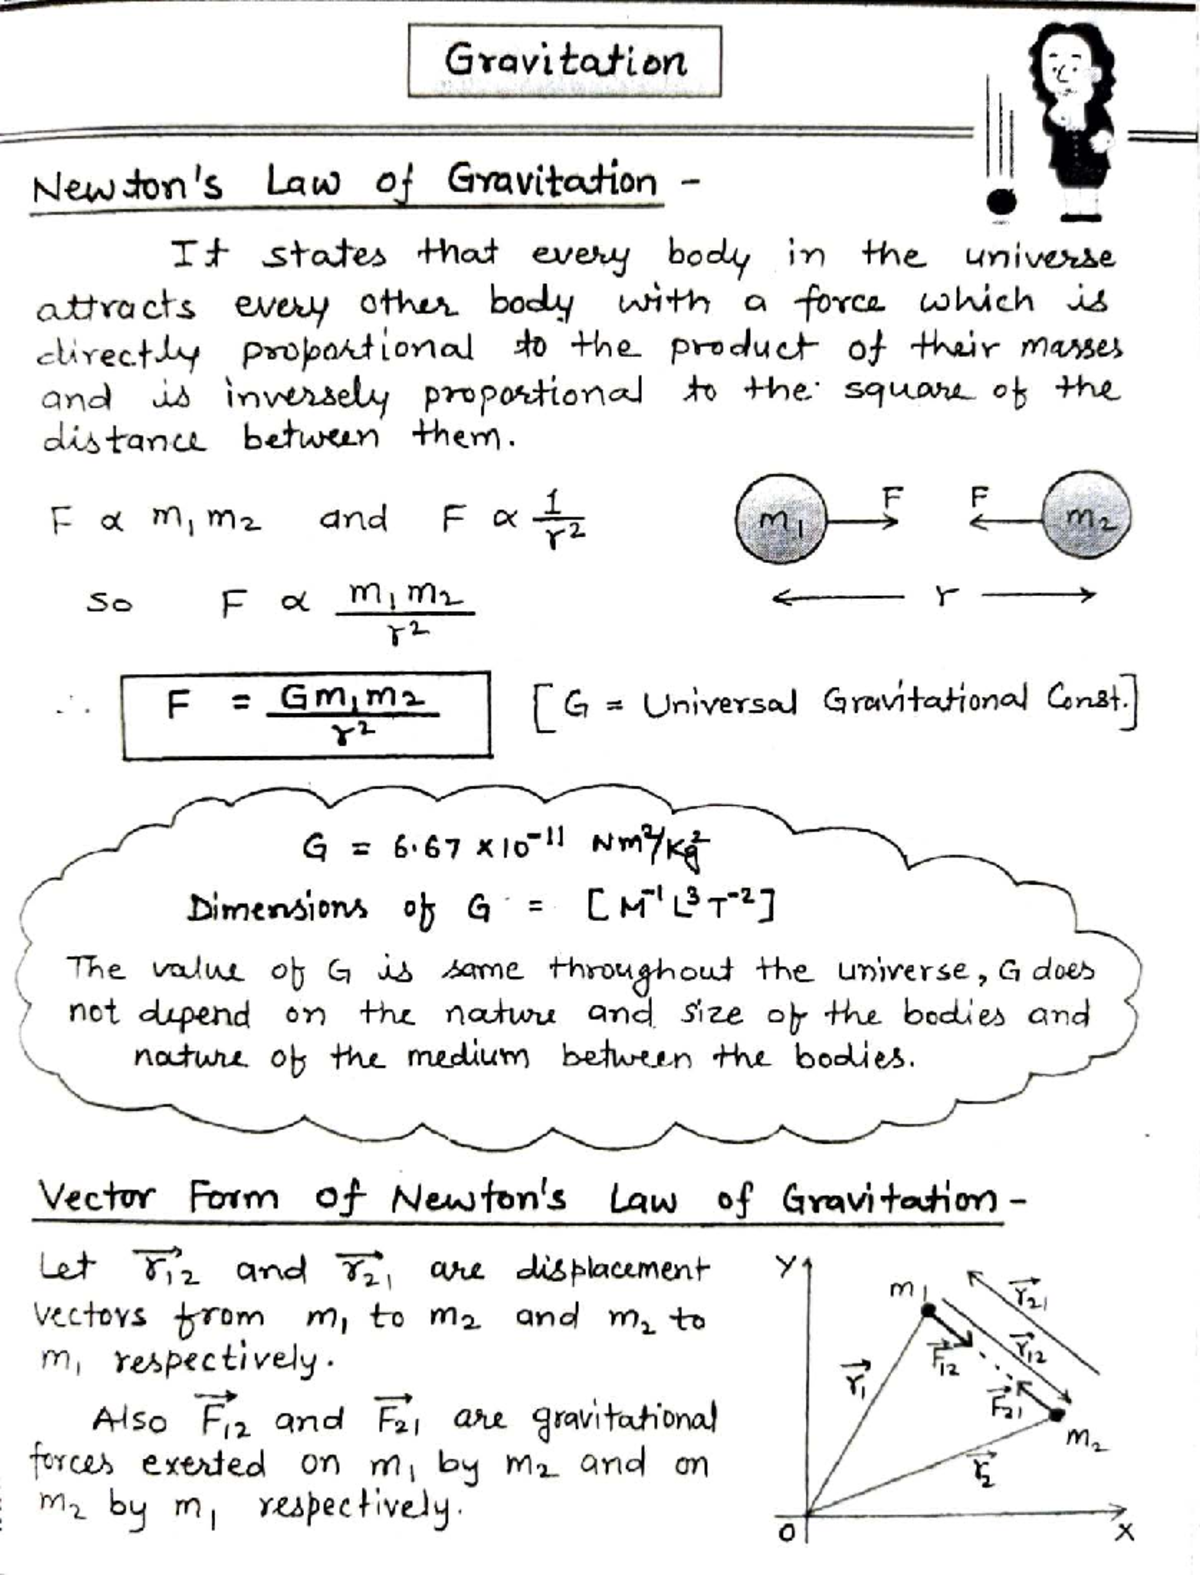 Gravitation
Newton's Law of Gravitation -
It states that every body in the universe
attracts every other body with a force which is
directly proportional to the product of their masses
and is inversely proportional to the square of the
distance between them.
F ∝ m₁m₂ and F ∝ 1/r²
m₁ F F m₂
So F ∝ m₁m₂/r²
r
∴ F = Gm₁m₂/r² [G = Universal Gravitational Const.]
G = 6.67 × 10⁻¹¹ Nm²/Kg²
Dimensions of G = [M⁻¹L³T⁻²]
The value of G is same throughout the universe, G does
not depend on the nature and size of the bodies and
nature of the medium between the bodies.
Vector Form of Newton's Law of Gravitation -
Let r⃗₁₂ and r⃗₂₁ are displacement
vectors from m₁ to m₂ and m₂ to
m₁ respectively.
Also F⃗₁₂ and F⃗₂₁ are gravitational
forces exerted on m₁ by m₂ and on
m₂ by m₁ respectively.
Y
m₁ r⃗₂₁
F⃗₁₂ r⃗₁₂
r⃗₁ F⃗₂₁
m₂
r⃗₂
O X